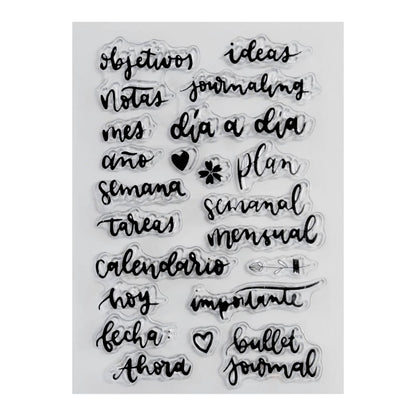 objetivos
ideas
notas
journaling
mes
día a día
año
plan
semana
semanal
tareas
mensual
calendario
hoy
importante
fecha
bullet
journal
Ahora